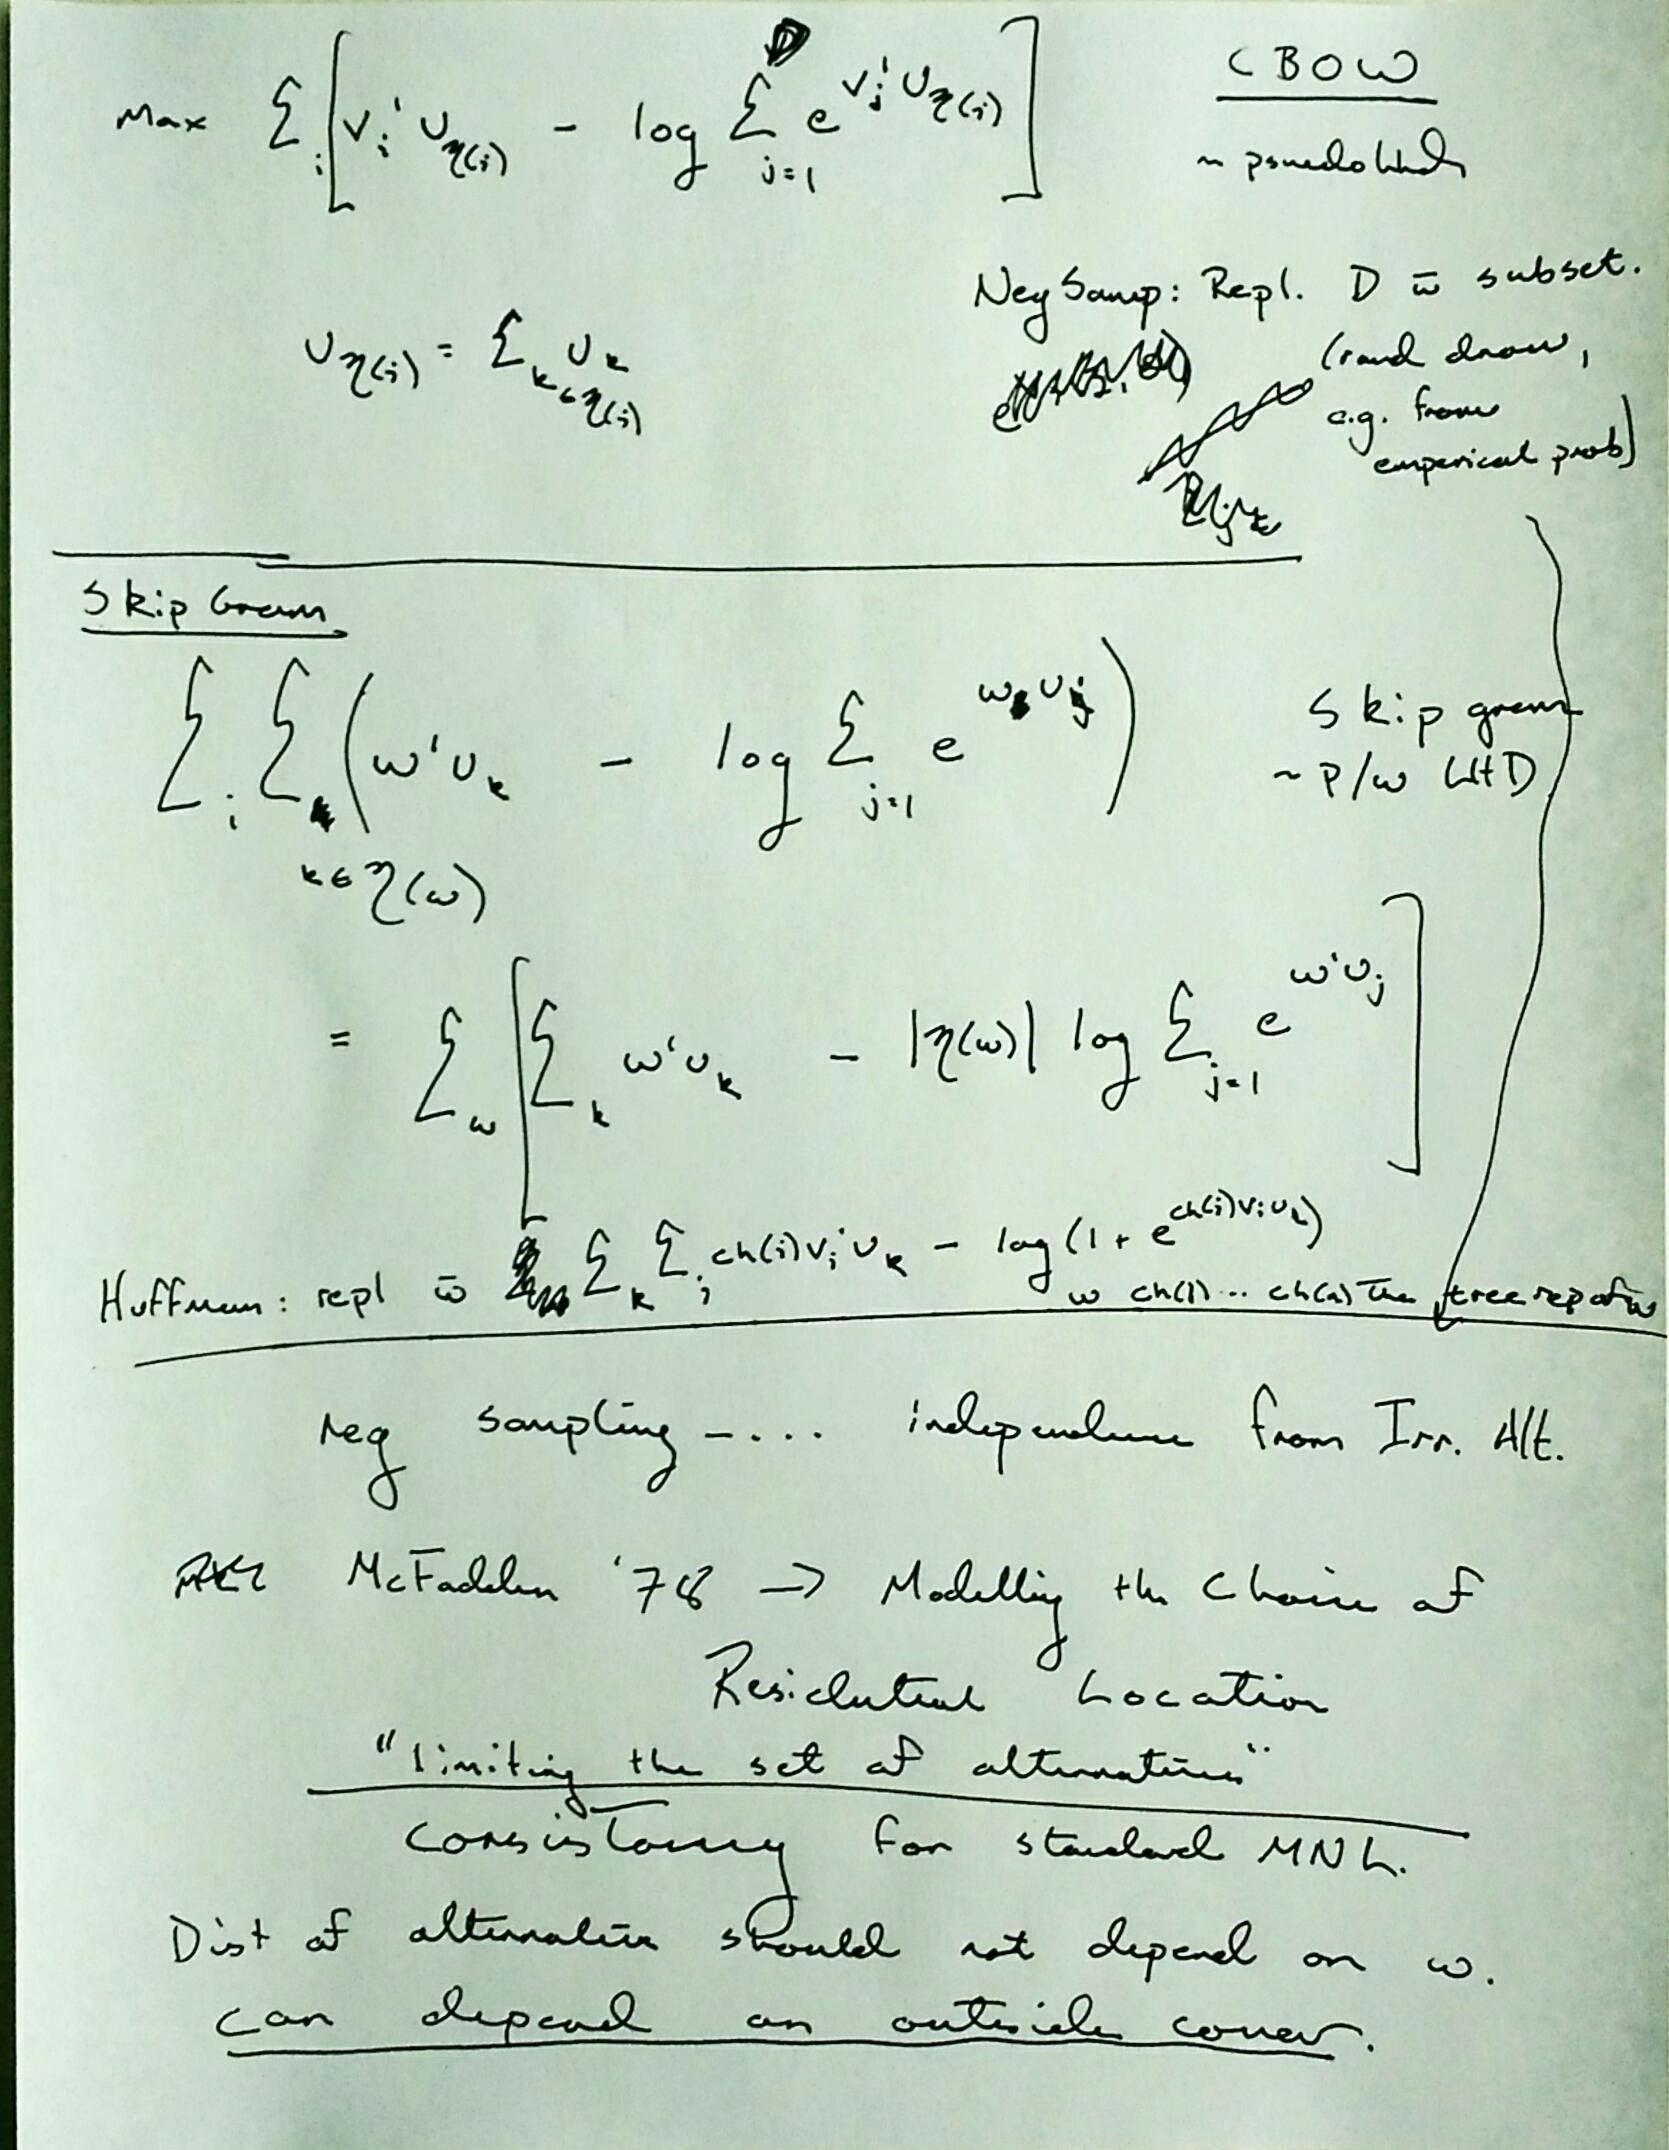 CBOW
Max Σ_i [ v_i' u_η(i) − log Σ_{j=1}^D e^{v_j' u_η(i)} ]
~ psuedo lhd
Neg Samp: Repl. D w̄ subset.
(rand draw,
e.g. from
emperical prob)
u_η(i) = Σ_{k∈η(i)} u_k
Skip Gram
Σ_i Σ_{k∈η(w)} ( w'u_k − log Σ_{j=1} e^{w u_j} )
Skip gram
~ P/w LHD
= Σ_w [ Σ_k w'u_k − |η(w)| log Σ_{j=1} e^{w'u_j} ]
Huffman: repl w̄ Σ_k Σ_i ch(i)v_i'u_k − log(1 + e^{ch(i)v_i u_k})
w ch(1)... ch(n) the tree rep of w
neg sampling –.... independence from Irr. Alt.
McFadden '78 → Modelling the Choice of
Residential Location
"limiting the set of alternatives"
consistancy for standard MNL.
Dist of alternative should not depend on w.
can depend on outside cover.